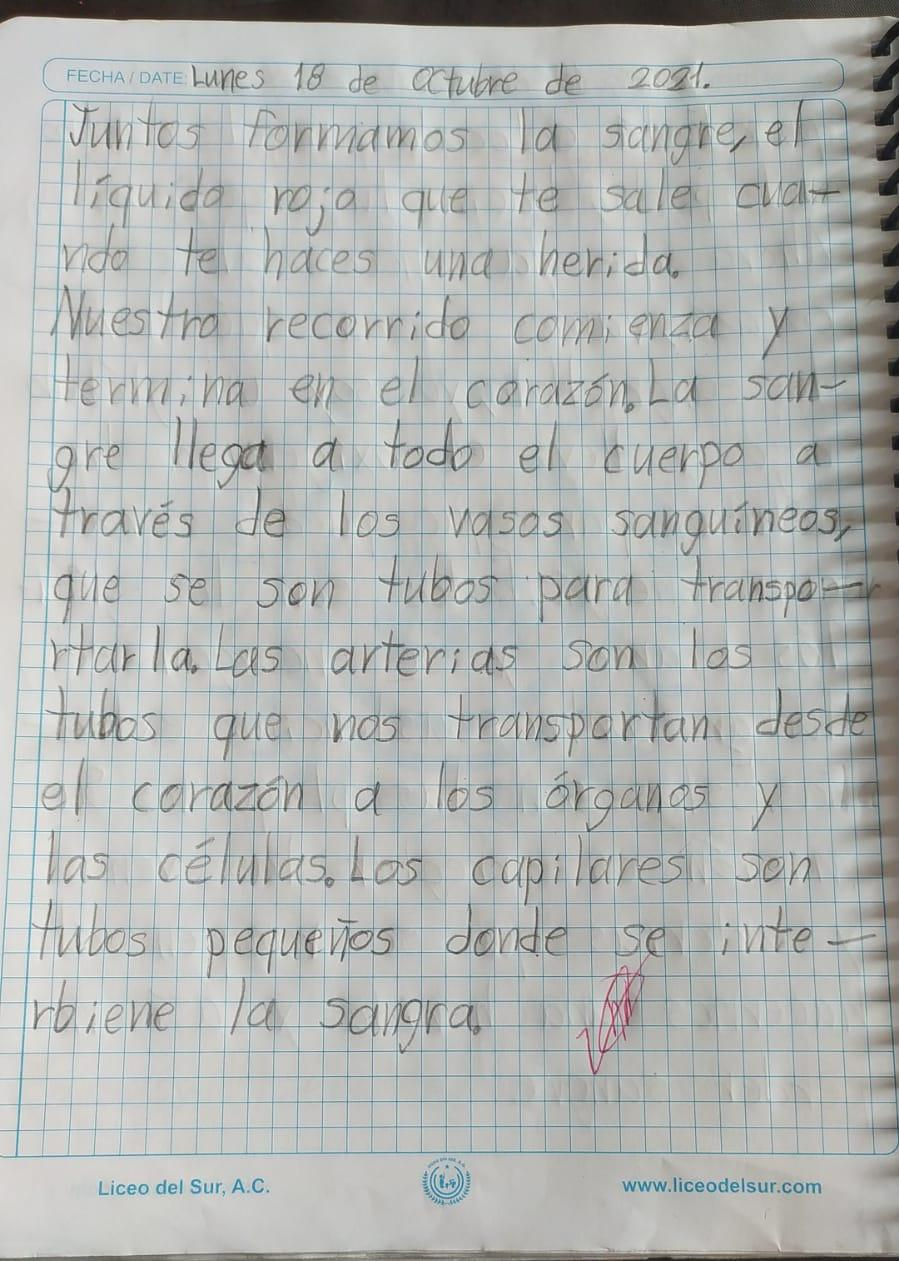 FECHA / DATE: Lunes 18 de Octubre de 2021.
Juntos formamos la sangre, el
líquido rojo que te sale cua-
ndo te haces una herida.
Nuestro recorrido comienza y
termina en el corazón. La san-
gre llega a todo el cuerpo a
través de los vasos sanguíneos,
que se son tubos para transpo-
rtarla. Las arterias son los
tubos que nos transportan desde
el corazón a los órganos y
las células. Los capilares son
tubos pequeños donde se inte-
rbiene la sangra.
Liceo del Sur, A.C.
www.liceodelsur.com